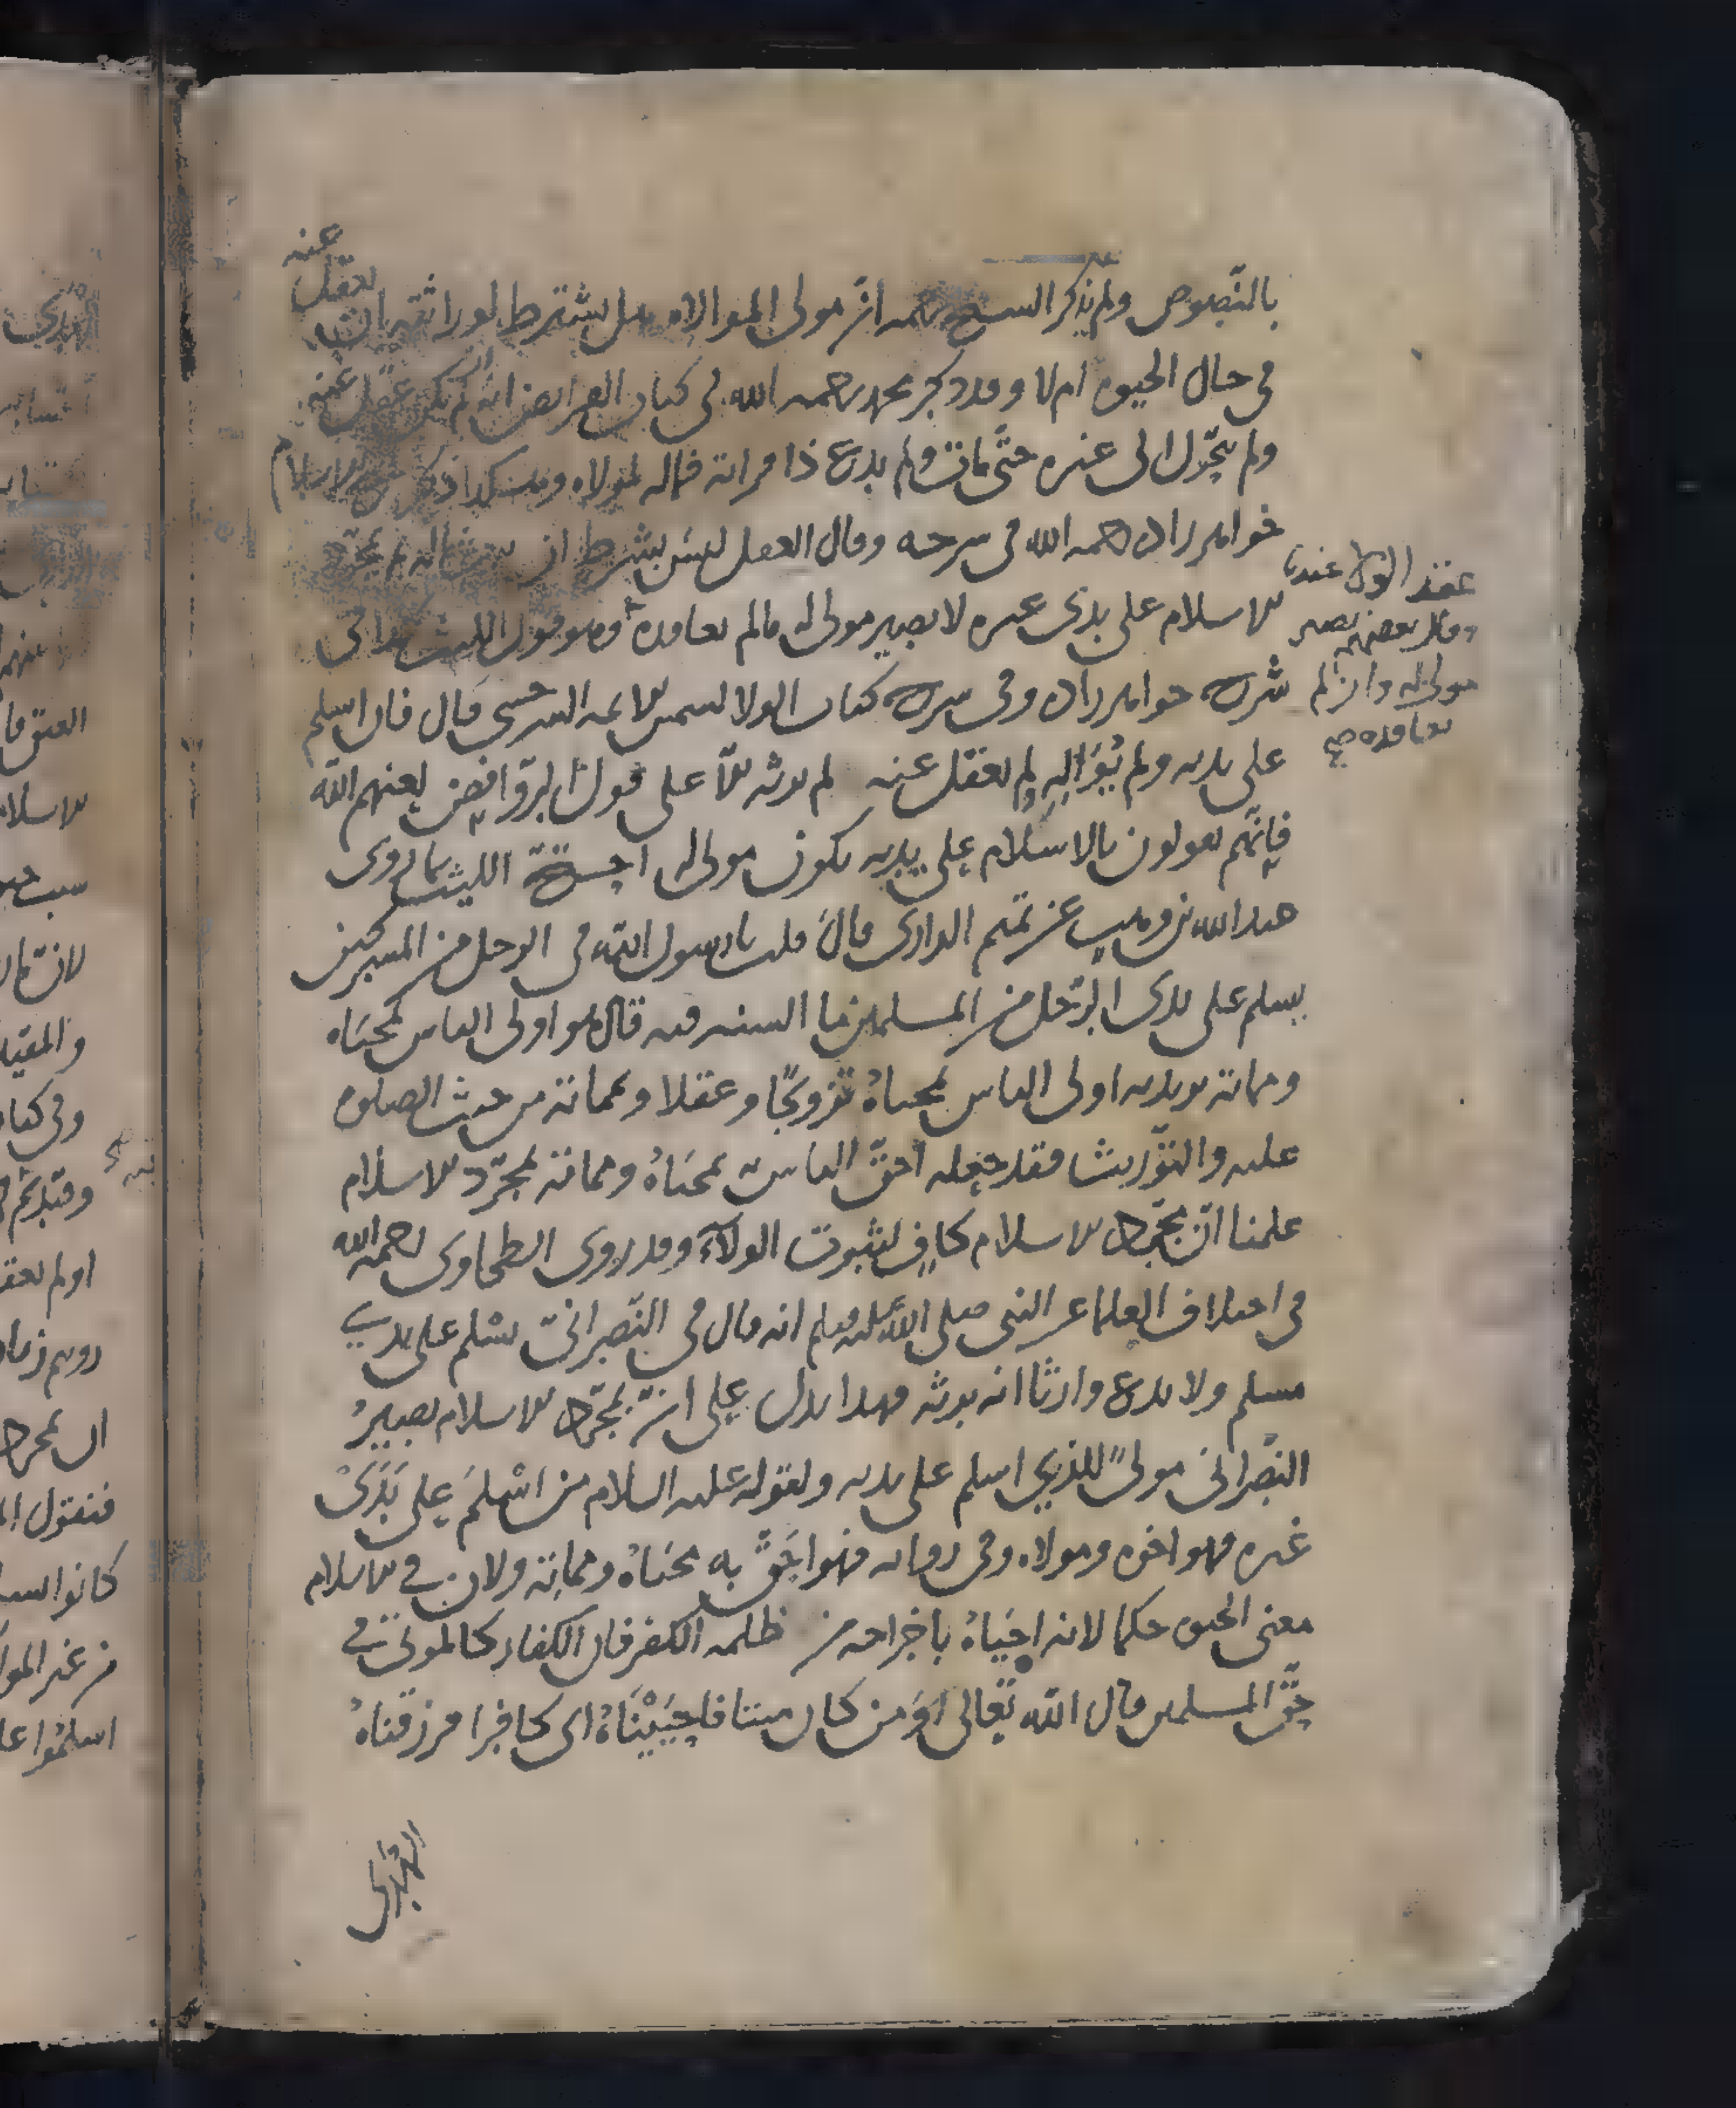 بالنصوص ولم يذكر الشيخ رحمه انّ مولى الموالاه هل يشترط لوراثته ان يعقل عنه
في حال الحيوة ام لا وقد ذكر محمد رحمه الله في كتاب الفرايض انه لم يكن عقل عنه
ولم يتحوّل الى غيره حتّى مات ولم يدع ذا قرابة فماله لمولاه وهكذا ذكر شيخ الاسلام
خواهر زاده رحمه الله في شرحه وقال العقل ليس بشرط
عقد الولا عندنا
وقال بعضهم يصير
مولى له وان لم
يعاقده صح
الاسلام على يدي غيره لا يصير مولى له مالم يعاقده وهو قول الليث هذا في
شرح خواهر زاده وفي شرح كتاب الولا لشمس الايمه السرخسي قال فان اسلم
على يديه ولم يُوَاله لم يعقل عنه لم يرثه الّا على قول الروافض لعنهم الله
فانّهم يقولون بالاسلام على يديه يكون مولى له احتج الليث بما روى
عبد الله بن وهب عن تميم الداري قال قلت يا رسول الله في الرجل من المشركين
يسلم على يدى الرّجل من المسلمين ما السنه فيه قال هو اولى الناس بمحياه
ومماته يريد به اولى الناس بمحياهُ تزويجًا وعقلا وبمماته من حيث الصلوه
عليه والتّوريث فقد جعله احقّ الناس بمحياهُ ومماته بمجرّد الاسلام
علمنا انّ بمجرّد الاسلام كافٍ لثبوت الولآء وقد روى الطحاوى رحمه الله
في اختلاف العلما عن النبي صلى الله عليه وسلم انه قال في النّصراني يسلم على يدي
مسلم ولا يدع وارثًا انه يرثه فهذا يدل على انّ بمجرّد الاسلام يصيرُ
النّصراني مولىً للذي اسلم على يديه ولقوله عليه السلام من اسْلمَ على يَدَىْ
غيره فهو اخوه ومولاه وفي روايه فهو احَقّ به محياهُ ومماته ولان في الاسلام
معنى الحيوة حكما لانه احياهُ باخراجه من ظلمه الكفر فان الكفار كالموتى في
حقّ المسلمين قال الله تعالى اوَمن كان ميتا فاحيَيْنَاهُ اى كافرا فرزقناهُ
الهُدى